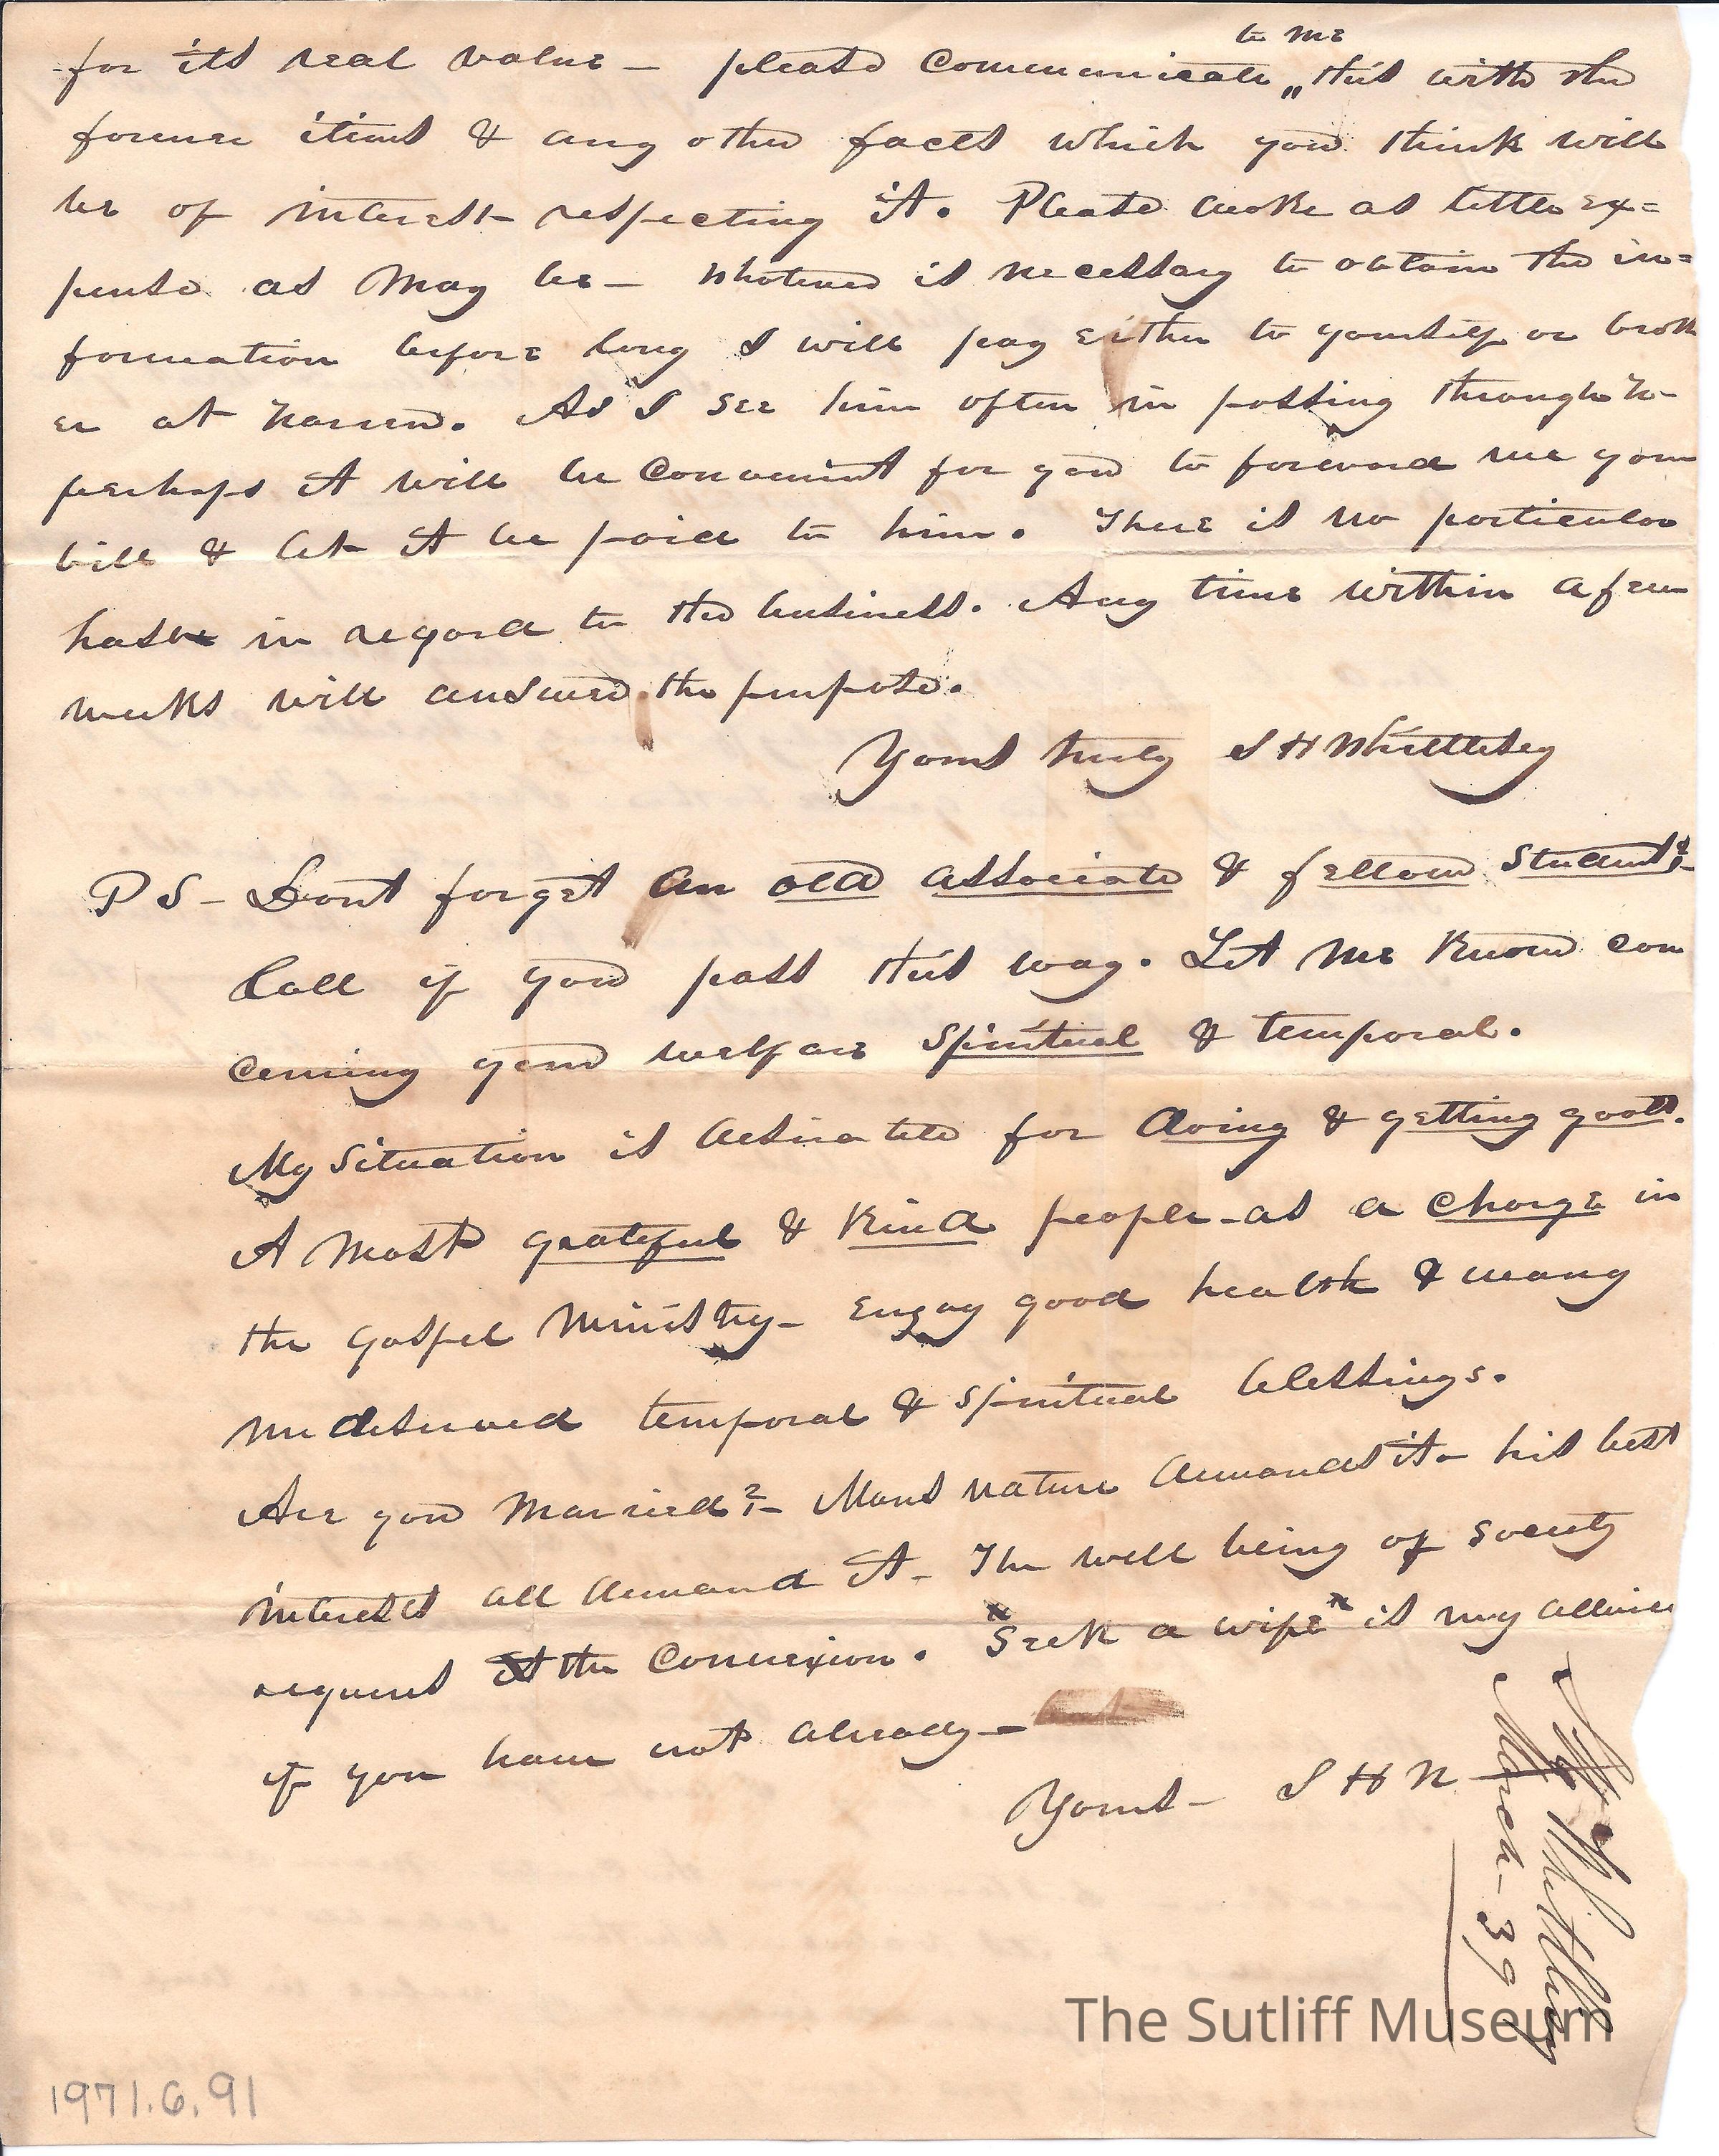 to me
for its real value – please communicate „ this with the
former items & any other facts which you think will
be of interest respecting it. Please make as little ex=
pense as may be – whatever is necessary to obtain the in=
formation before long I will pay either to yourself or brok
er at Warren. As I see him often in passing through W–
perhaps it will be convenient for you to forward me your
bill & let it be paid to him. There is no particular
haste in regard to the business. Any time within a few
weeks will answer the purpose.
Yours truly S H Whittlesey
P S – Dont forget an old associate & fellow student!–
Call if you pass this way. Let me know con
cerning your welfare spiritual & temporal.
My situation is desirable for doing & getting good.
A most grateful & kind people – as a charge in
the gospel ministry – enjoy good health & many
undeserved temporal & spiritual blessings.
Are you married?– Mans nature demands it – his best
interests all demand it – The well being of society
requires the connexion. "Seek a wife" is my advice
if you have not already –
Yours – S H W
Whittlesey
March – 39
The Sutliff Museum
1971.6.91